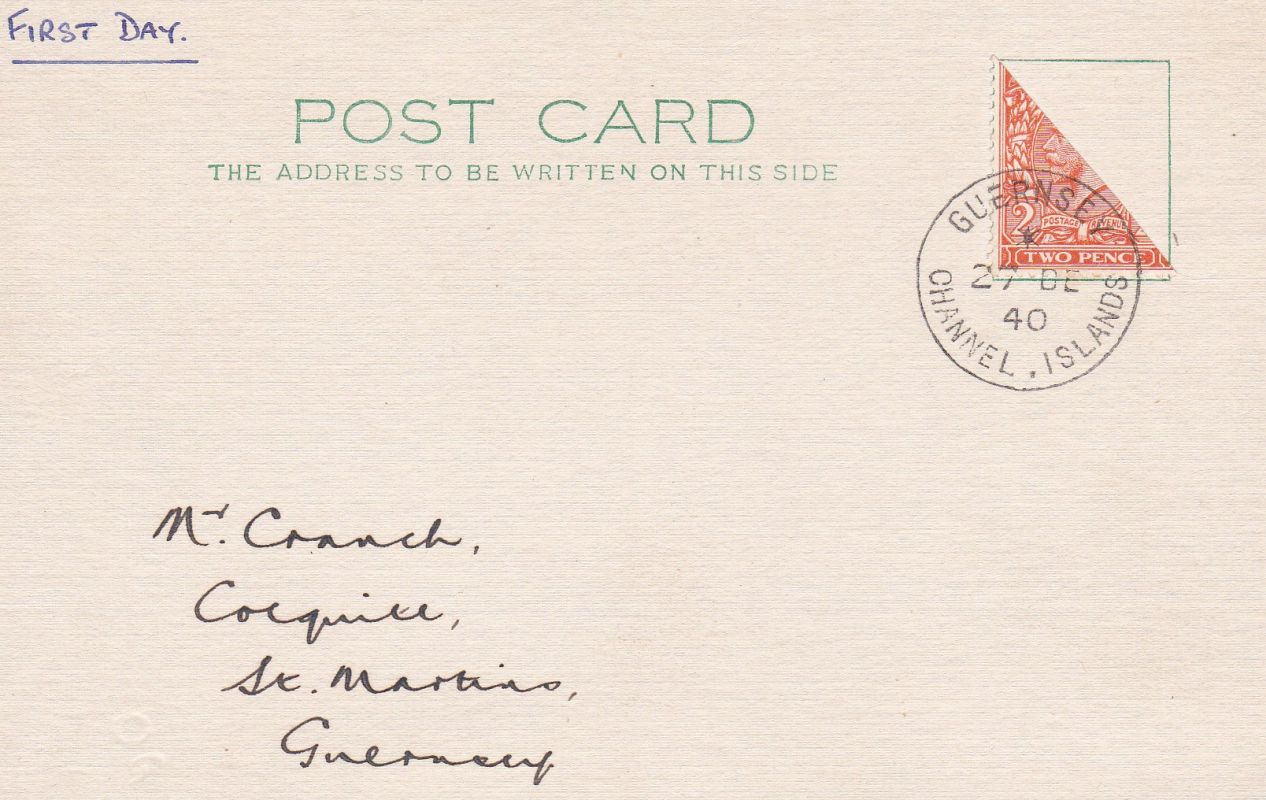 FIRST DAY.
POST CARD
THE ADDRESS TO BE WRITTEN ON THIS SIDE
2
POSTAGE REVENUE
TWO PENCE
GUERNSEY
27 DE
40
CHANNEL . ISLANDS
Mr. Cranch,
Colquitt,
St. Martins,
Guernsey